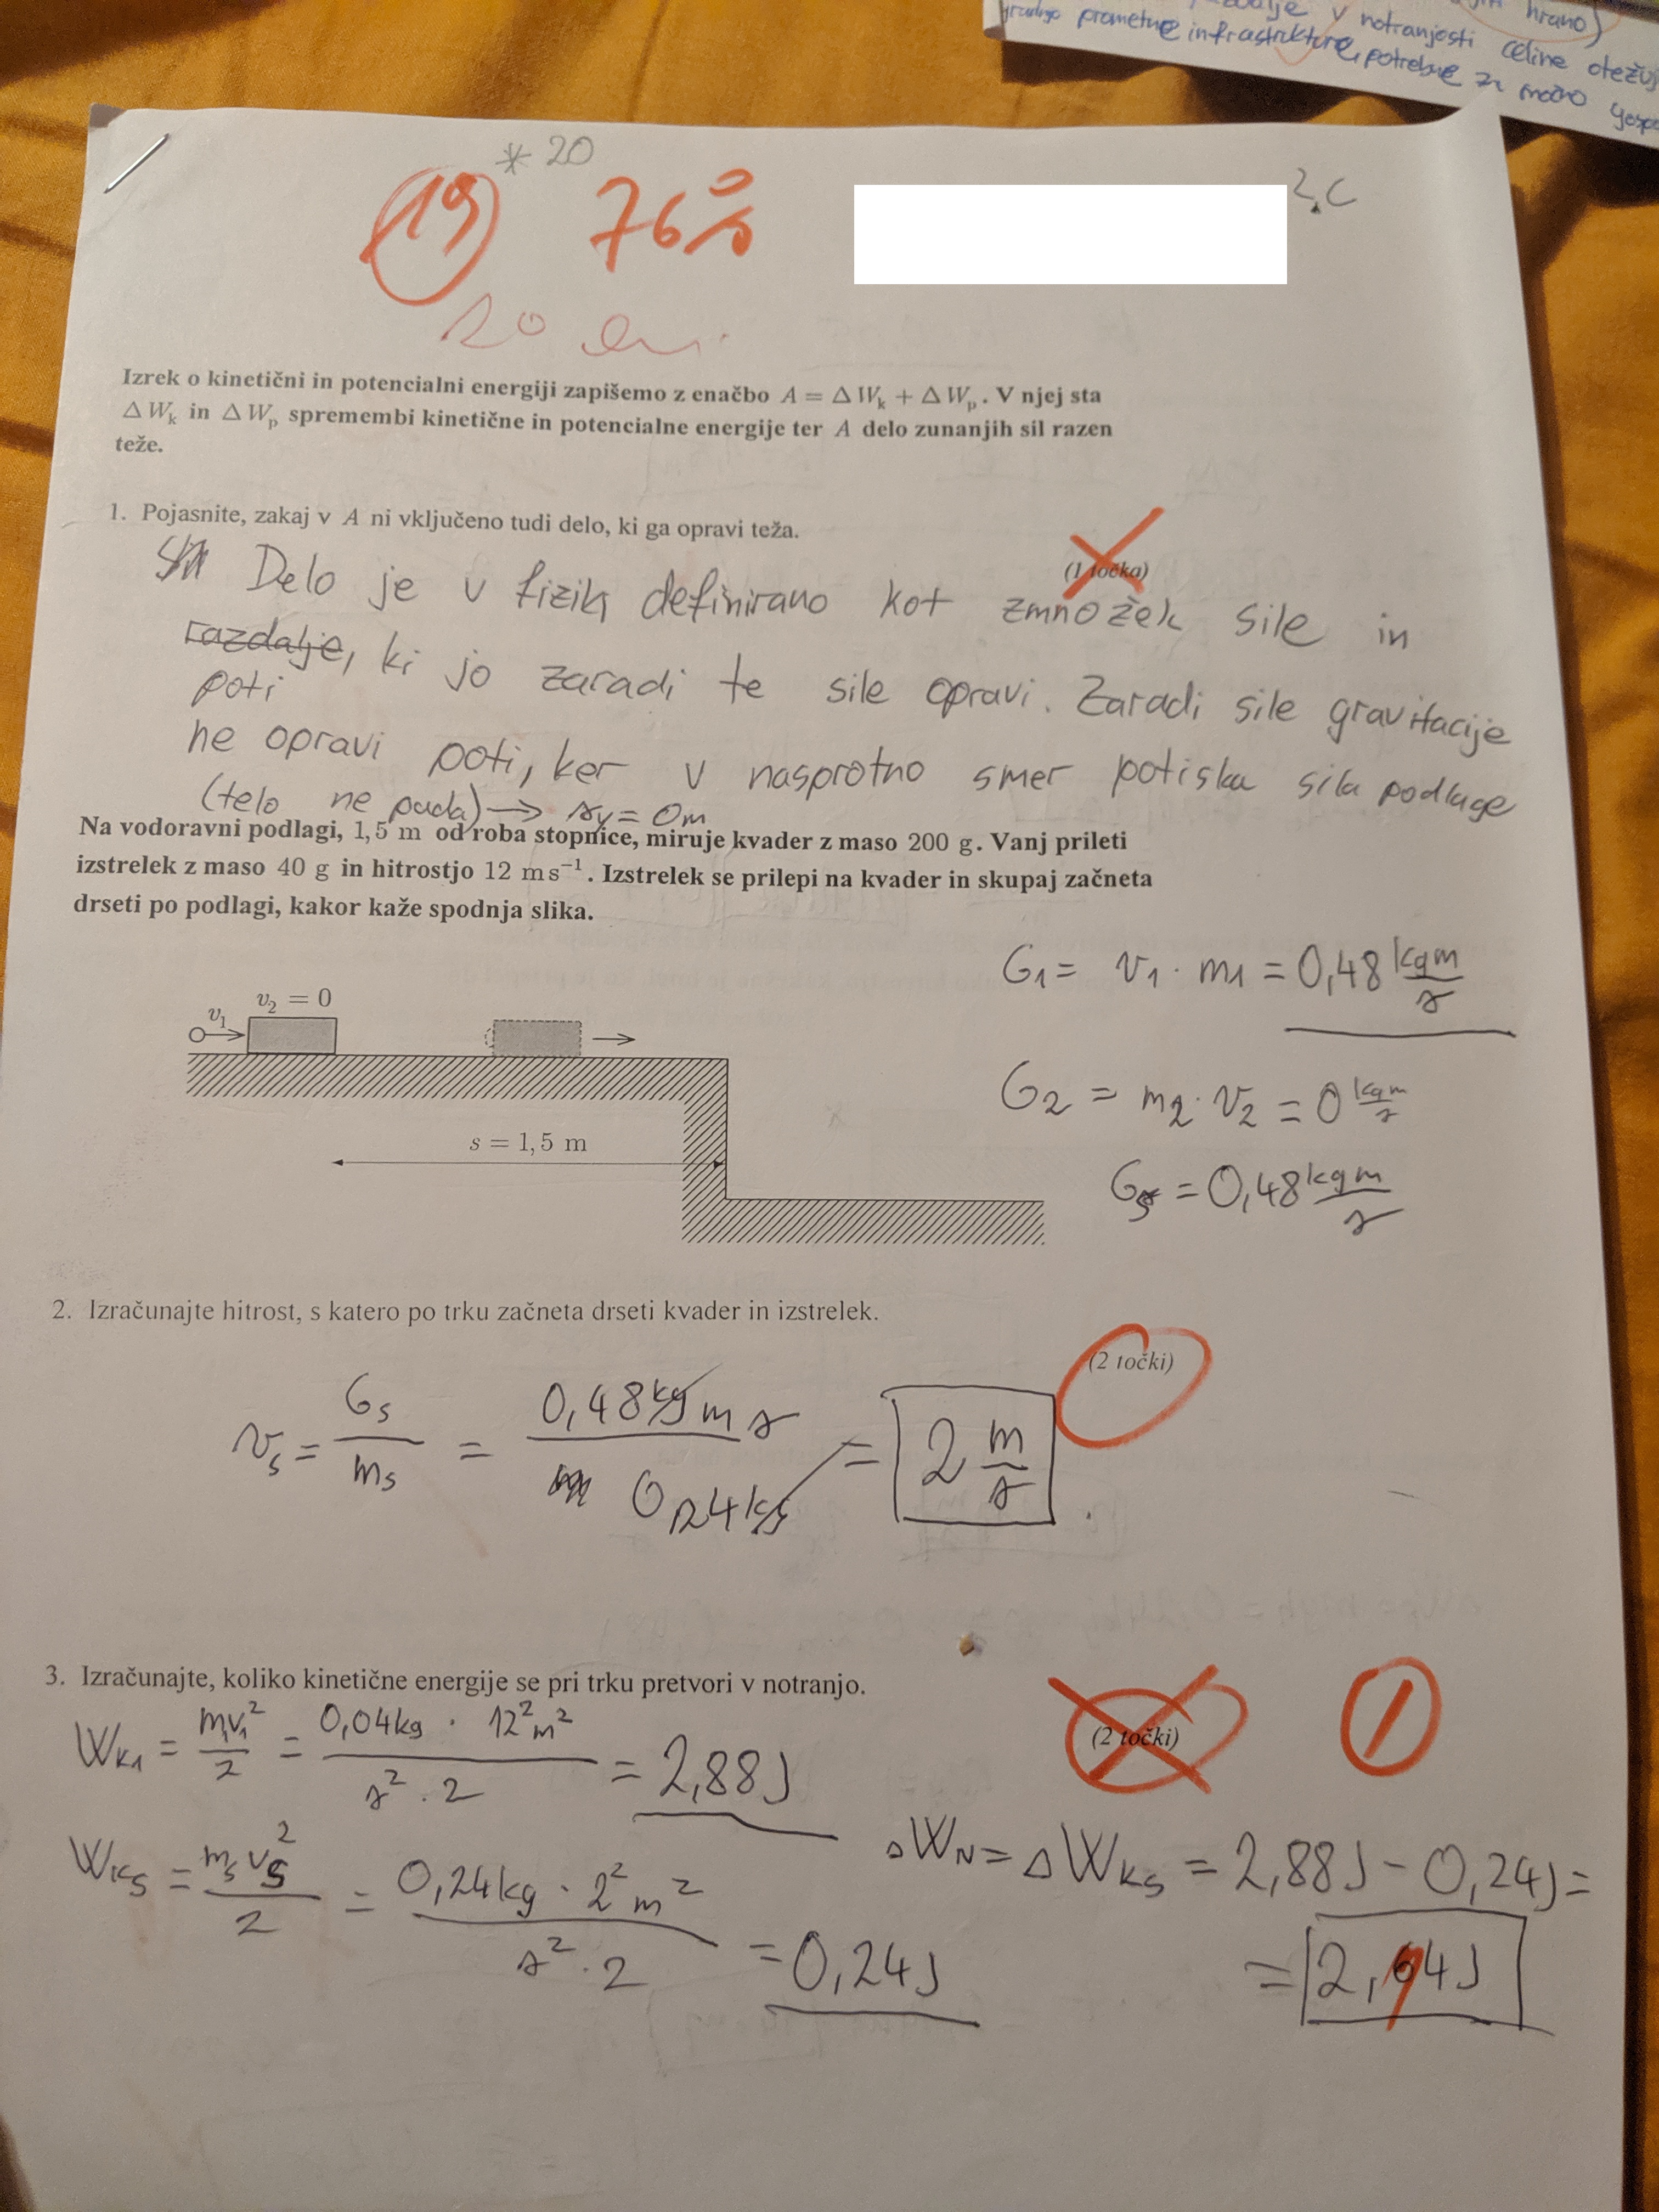 hrano)
v notranjosti celine otežuj
gradnjo prometne infrastrukture, potrebne za močno gospo
* 20
2.C
19 76%
20 en.
Izrek o kinetični in potencialni energiji zapišemo z enačbo A = Δ Wk + Δ Wp. V njej sta
Δ Wk in Δ Wp spremembi kinetične in potencialne energije ter A delo zunanjih sil razen
teže.
1. Pojasnite, zakaj v A ni vključeno tudi delo, ki ga opravi teža.
(1 točka)
Delo je v fiziki definirano kot zmnožek sile in
razdalje, ki jo zaradi te sile opravi. Zaradi sile gravitacije
poti
ne opravi poti, ker v nasprotno smer potiska sila podlage
(telo ne pada) → sy = 0m
Na vodoravni podlagi, 1,5 m od roba stopnice, miruje kvader z maso 200 g. Vanj prileti
izstrelek z maso 40 g in hitrostjo 12 ms⁻¹. Izstrelek se prilepi na kvader in skupaj začneta
drseti po podlagi, kakor kaže spodnja slika.
G1 = v1 · m1 = 0,48 kgm/s
v1 v2 = 0
G2 = m2 · v2 = 0 kgm/s
s = 1,5 m
Gs = 0,48 kgm/s
2. Izračunajte hitrost, s katero po trku začneta drseti kvader in izstrelek.
(2 točki)
vs = Gs/ms = 0,48kg m / s 0,24kg = 2 m/s
3. Izračunajte, koliko kinetične energije se pri trku pretvori v notranjo.
(2 točki) 1
WK1 = m1v1²/2 = 0,04kg · 12² m² / s² · 2 = 2,88J
WKs = msvs²/2 = 0,24kg · 2² m² / s² · 2 = 0,24J
ΔWN = ΔWKs = 2,88J - 0,24J =
= 2,64J